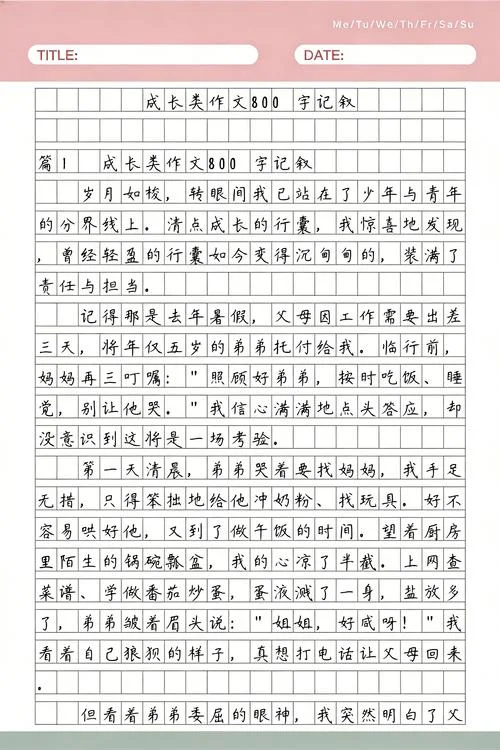 Me/Tu/We/Th/Fr/Sa/Su
TITLE:
DATE:
成长类作文800 字记叙
篇1 成长类作文800 字记叙
岁月如梭，转眼间我已站在了少年与青年
的分界线上。清点成长的行囊，我惊喜地发现
，曾经轻盈的行囊如今变得沉甸甸的，装满了
责任与担当。
记得那是去年暑假，父母因工作需要出差
三天，将年仅五岁的弟弟托付给我。临行前，
妈妈再三叮嘱："照顾好弟弟，按时吃饭、睡
觉，别让他哭。"我信心满满地点头答应，却
没意识到这将是一场考验。
第一天清晨，弟弟哭着要找妈妈，我手足
无措，只得笨拙地给他冲奶粉、找玩具。好不
容易哄好他，又到了做午饭的时间。望着厨房
里陌生的锅碗瓢盆，我的心凉了半截。上网查
菜谱、学做番茄炒蛋，蛋液溅了一身，盐放多
了，弟弟皱着眉头说："姐姐，好咸呀！"我
看着自己狼狈的样子，真想打电话让父母回来
。
但看着弟弟委屈的眼神，我突然明白了父